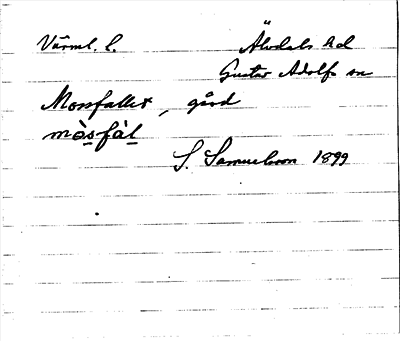 Värml. l. Älvdals hd
Gustav Adolfs sn
Mossfallet, gård
mòsfàl
S. Samuelsson 1899